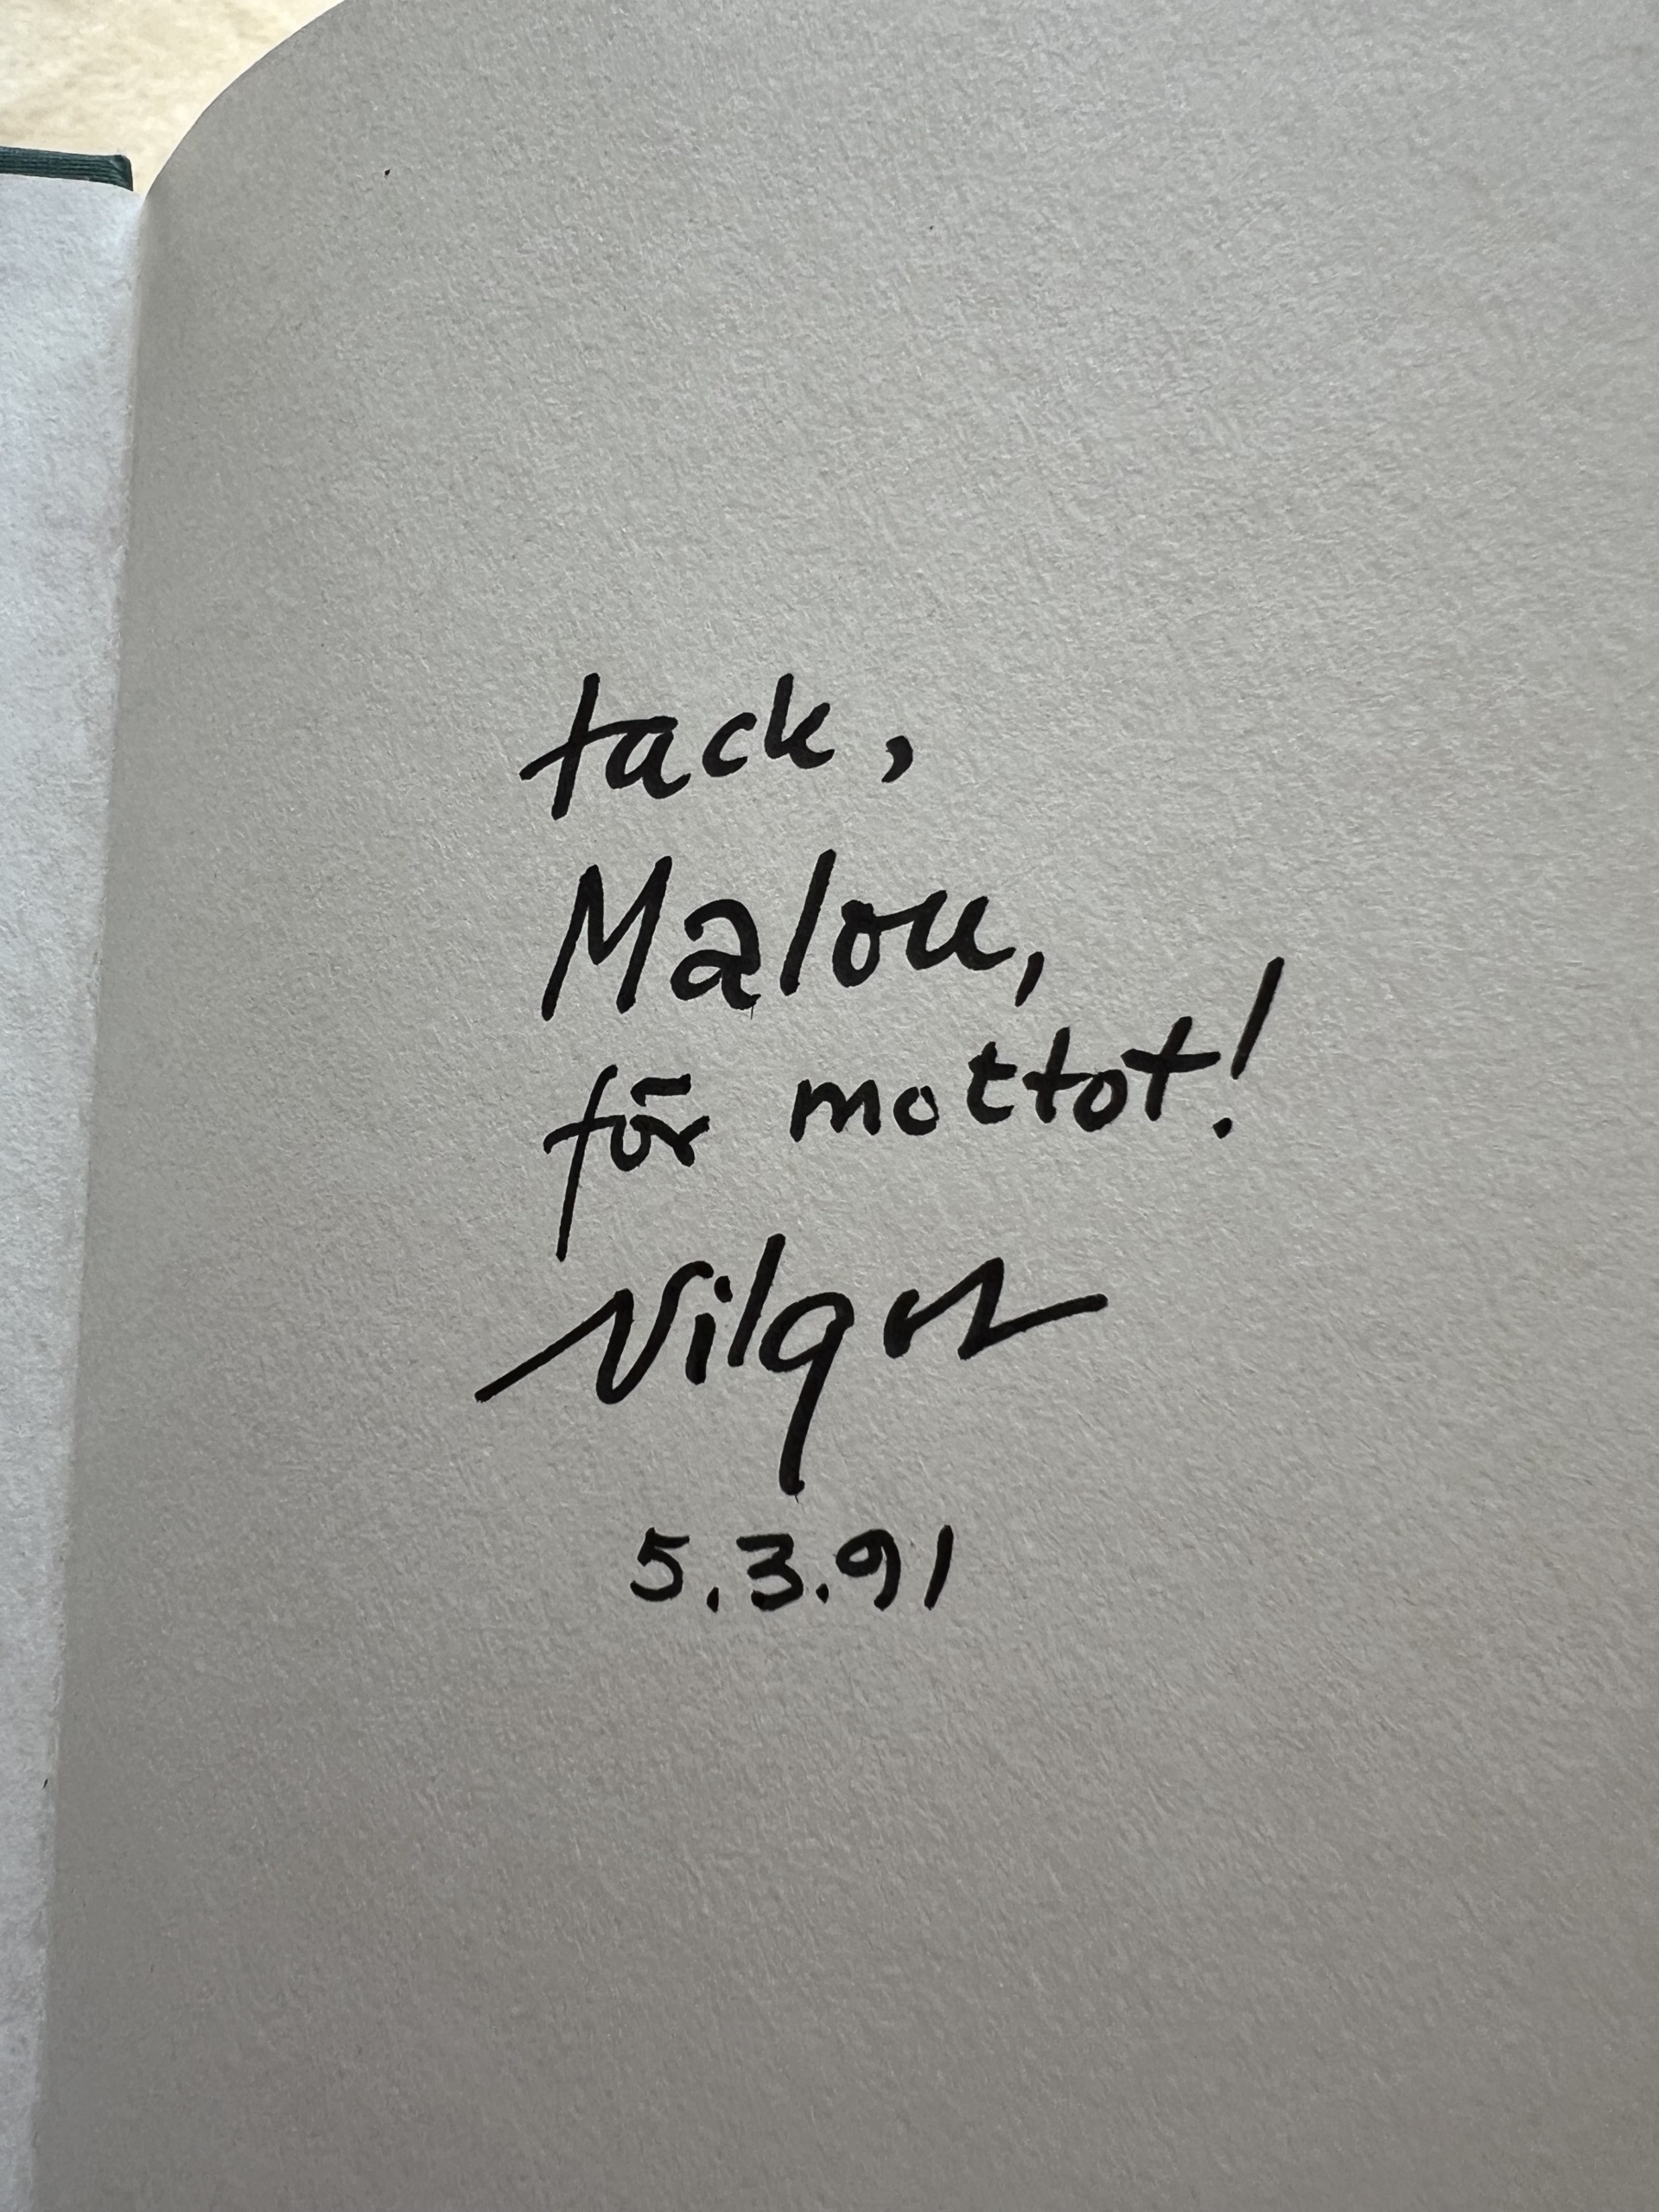 tack,
Malou,
för mottot!
5.3.91